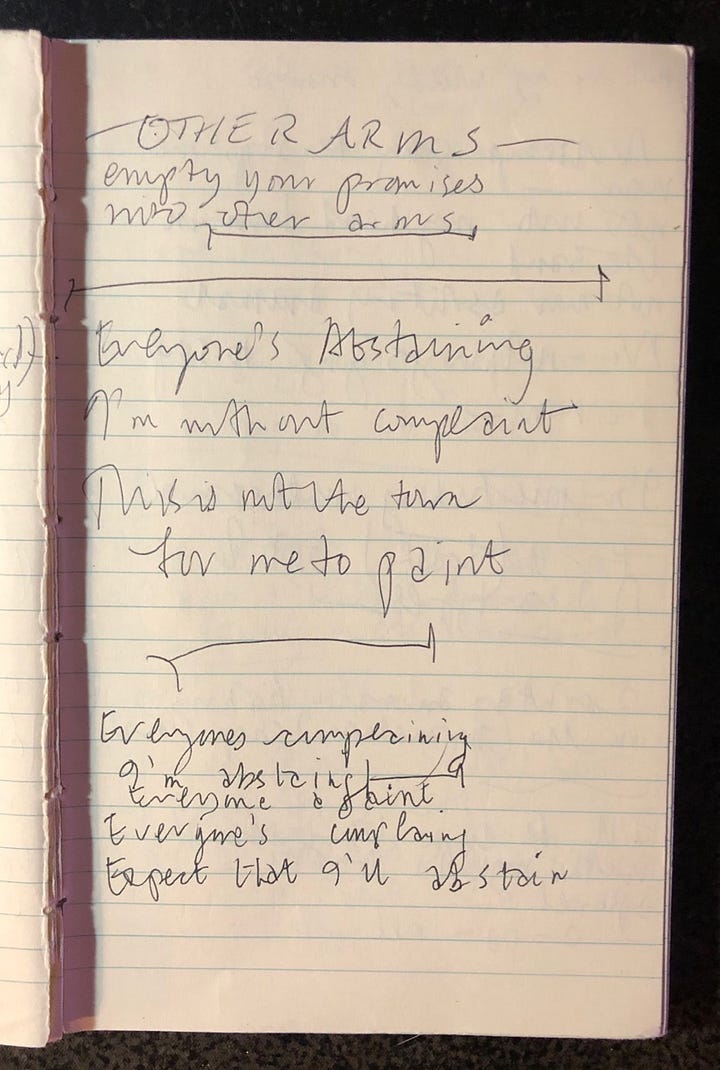 OTHER ARMS
empty your promises
into other arms
Everyone's Abstaining
I'm without complaint
This is not the town
for me to paint
Everyones complaining
I'm abstaing
Everyone a saint
Everyone's complaing
Expect that I'll abstain